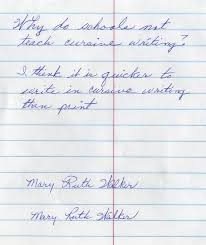 Why do schools not
teach cursive writing?
I think it is quicker to
write in cursive writing
than print
Mary Ruth Walker
Mary Ruth Walker